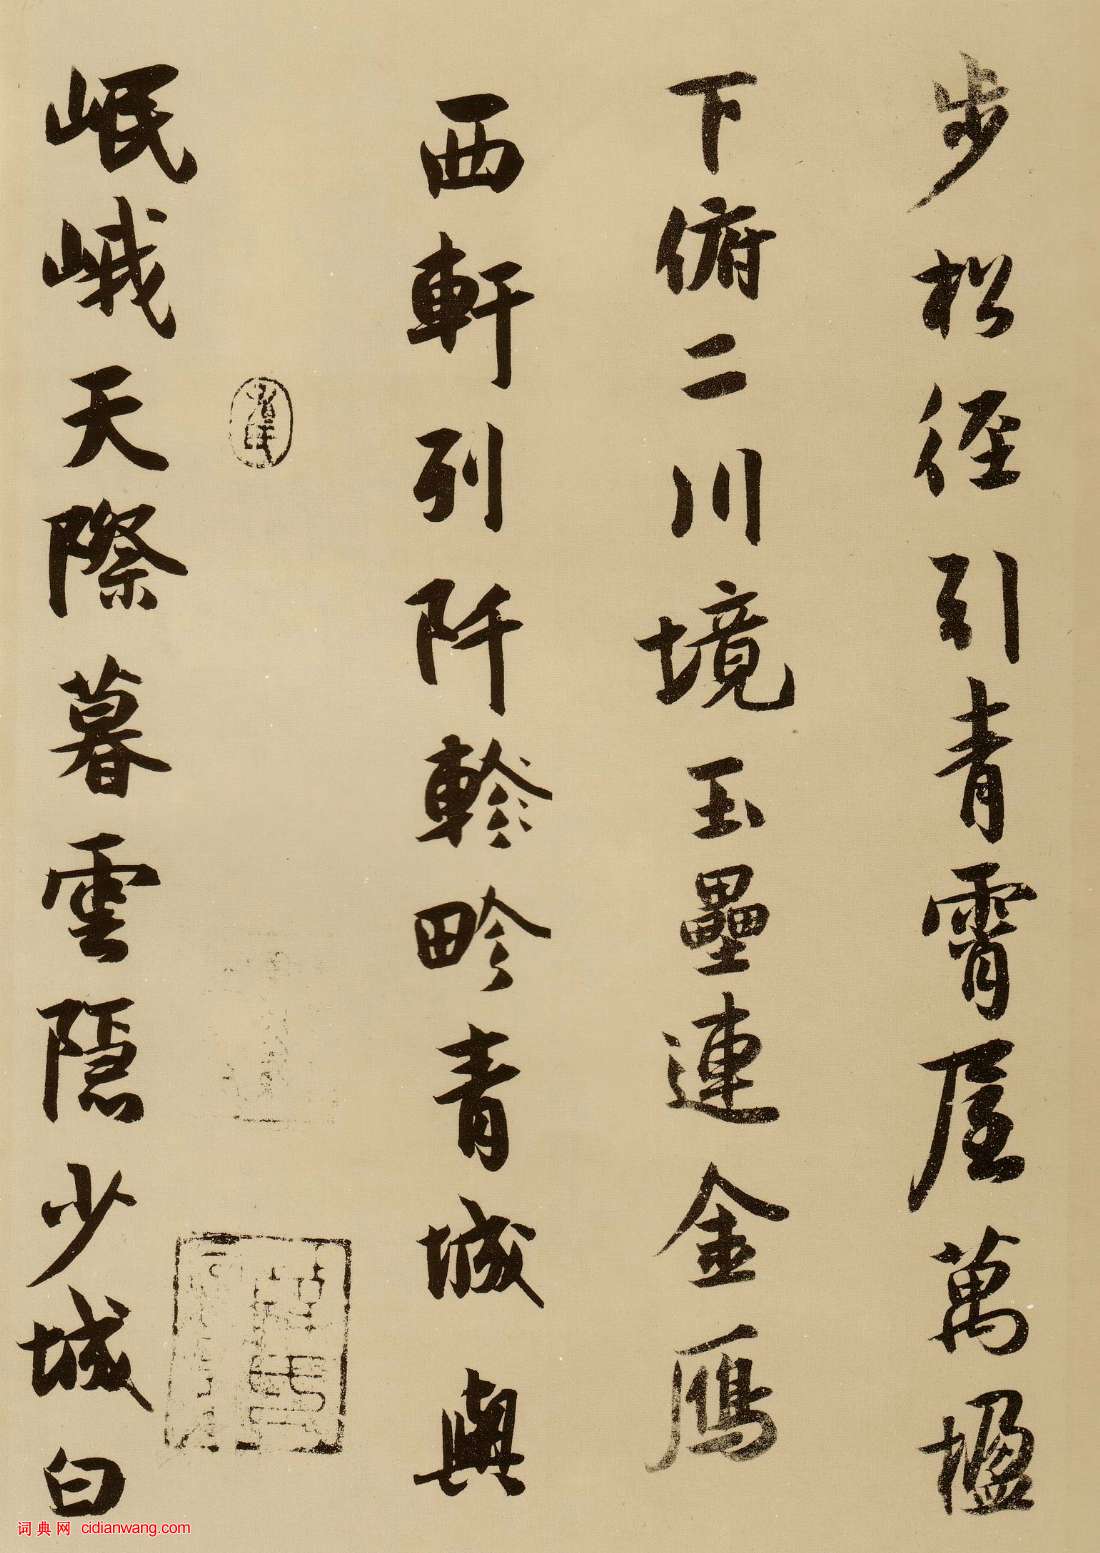 步松徑引青霄屋萬楹
下俯二川境玉壘連金鴈
西軒列阡軫畛青城與
岷峨天際暮雲隱少城白
词典网 cidianwang.com